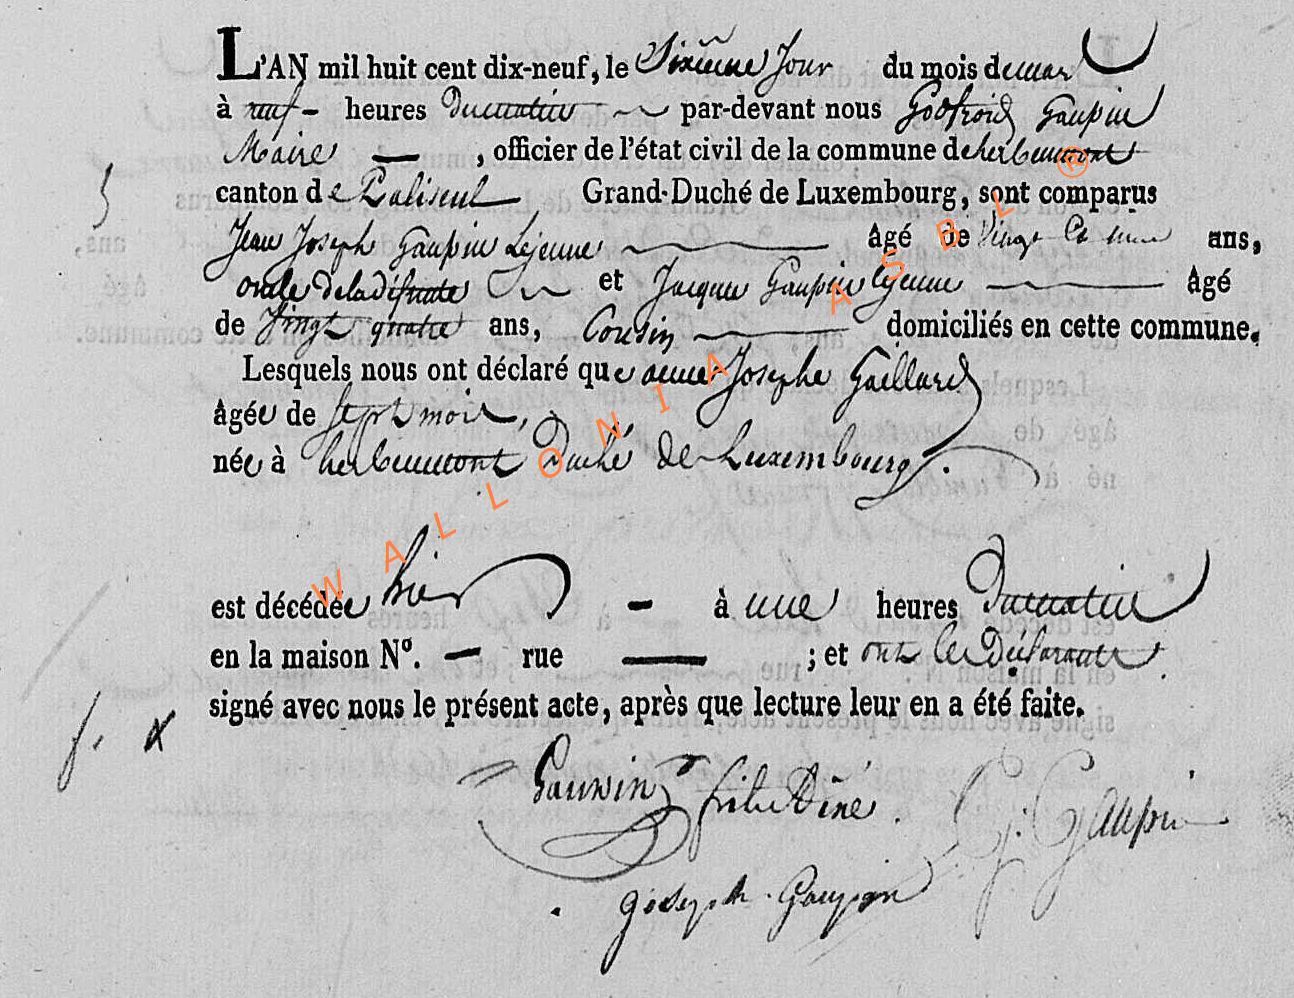 L'AN mil huit cent dix-neuf, le Sixieme Jour du mois de mars
à neuf heures du matin par-devant nous Godfroid Gaupin
Maire , officier de l'état civil de la commune de herbeumont
canton de Paliseul Grand-Duché de Luxembourg, sont comparus
Jean Joseph Gaupin Lejeune âgé de Vingt et une ans,
oncle de la et Jacques Gaupin lejeune âgé
de Vingt quatre ans, Cousin domiciliés en cette commune.
Lesquels nous ont déclaré que Josephe Gaillard
âgée de Sept mois,
née à herbeumont Duché de Luxembourg.
est décédée hier à une heures du matin
en la maison N°. rue ; et ont les Déclarants
signé avec nous le présent acte, après que lecture leur en a été faite.
3
WALLONIA ASBL ®
f. x
G. Gaupin
joseph Gaupin